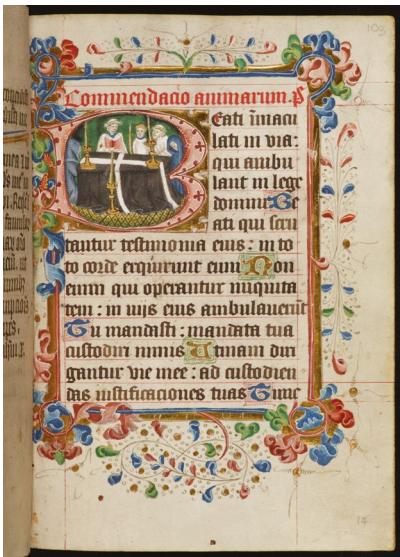 103
Commendacio animarum. Ps
Beati īmacu
lati in via:
qui ambu
lant in lege
domini. Be
ati qui scru
tantur testimonia eius: in to
to corde exquirunt eum Non
enim qui operantur iniquita
tem: in vijs eius ambulauerūt
Tu mandasti: mandata tua
custodiri nimis Utinam diri
gantur vie mee: ad custodien
das iustificaciones tuas Tunc